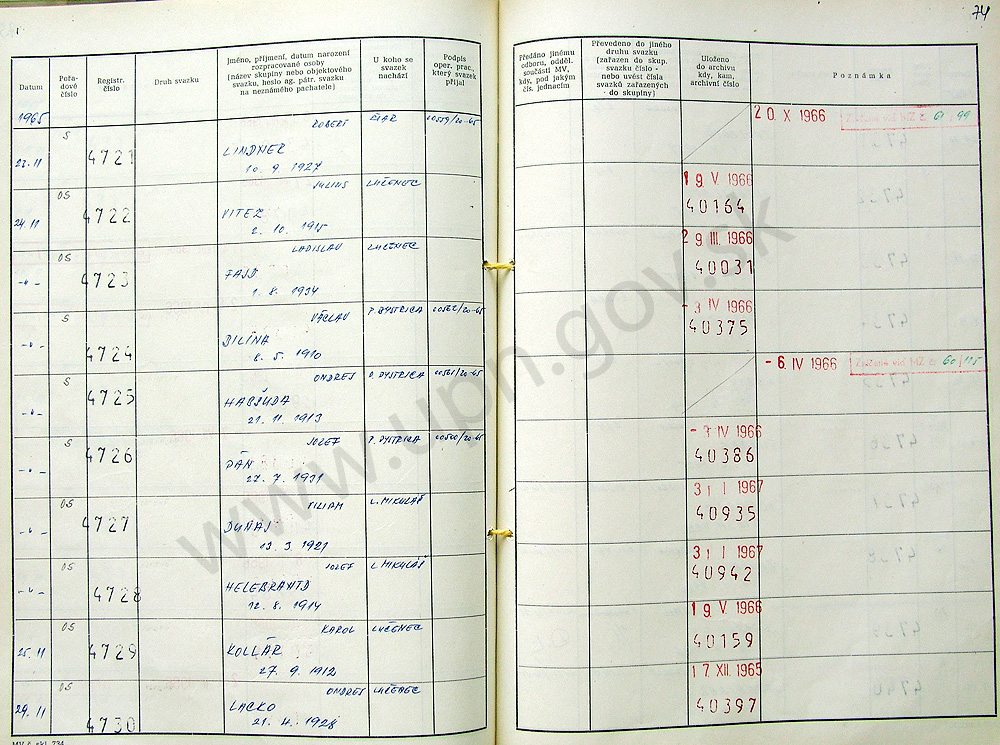 74
Datum
Pořadové číslo
Registr. číslo
Druh svazku
Jméno, příjmení, datum narození
rozpracované osoby
(název skupiny nebo objektového
svazku, heslo ag. pátr. svazku
na neznámého pachatele)
U koho se
svazek
nachází
Podpis
oper. prac.,
který svazek
přijal
Předáno jinému
odboru, odděl.
součásti MV,
kdy, pod jakým
čís. jednacím
Převedeno do jiného
druhu svazku
(zařazen do skup.
svazku číslo -
nebo uvést čísla
svazků zařazených
do skupiny)
Uloženo
do archivu
kdy, kam,
archivní číslo
Poznámka
1965
S
ROBERT
20. X 1966
61 99
23. 11
4721
LINDNER
10. 9. 1927
OS
JULIUS
LUČENEC
19. V. 1966
24. 11
4722
VITEZ
2. 10. 1915
40164
OS
LADISLAV
LUČENEC
29. III. 1966
-"-
4723
1. 8. 1934
40031
S
VÁCLAV
P. BYSTRICA
00562/20-65
-3 IV 1966
-"-
4724
BILINA
8. 5. 1910
40375
S
ONDREJ
P. BYSTRICA
00561/20-65
-6. IV 1966
60 115
-"-
4725
HABŠUDA
21. 11. 1913
S
JOZEF
P. BYSTRICA
00560/20-65
-3 IV 1966
-"-
4726
PÁN
27. 7. 1931
40386
OS
VILIAM
L. MIKULÁŠ
31 I 1967
-"-
4727
DUŇAJ
13. 3. 1921
40935
OS
JOZEF
L. MIKULÁŠ
31 I 1967
-"-
4728
HELEBRANTD
12. 8. 1914
40942
OS
KAROL
LUČENEC
19. V. 1966
25. 11
4729
KOLLÁR
27. 9. 1912
40159
OS
ONDREJ
LUČENEC
17. XII. 1965
29. 11
4730
LACKO
21. 4. 1928
40397
www.upn.gov.sk